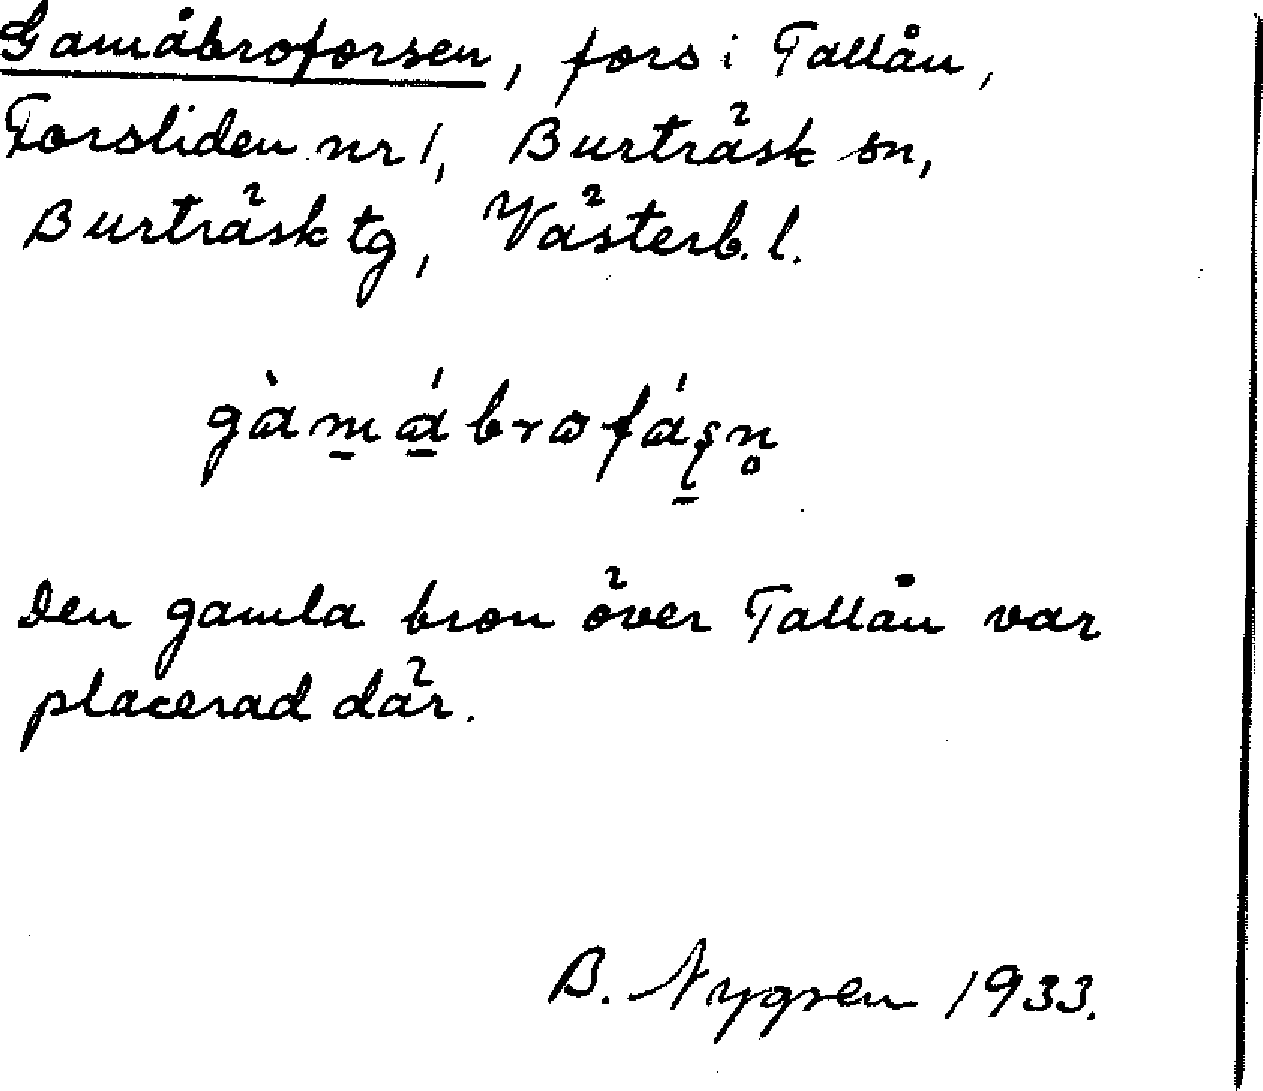 Gamåbroforsen, fors i Tallån,
Forsliden nr 1, Burträsk sn,
Burträsk tg, Västerb. l.
gàm̱á̱brofáʂ̱n̥
Den gamla bron över Tallån var
placerad där.
B. Nygren 1933.